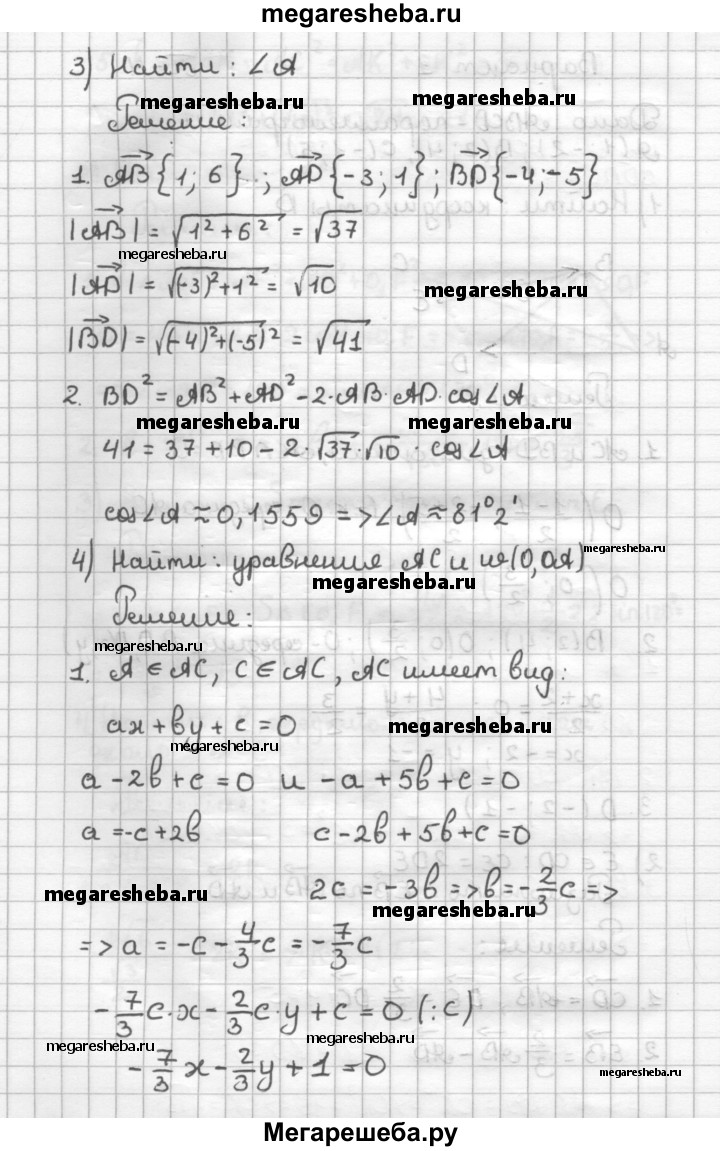 megaresheba.ru
3) Найти: ∠A
megaresheba.ru megaresheba.ru
Решение:
1. AB⃗{1; 6}; AD⃗{-3; 1}; BD⃗{-4; -5}
|AB⃗| = √(1²+6²) = √37
megaresheba.ru
|AD⃗| = √((-3)²+1²) = √10
megaresheba.ru
|BD⃗| = √((-4)²+(-5)²) = √41
2. BD² = AB²+AD²-2·AB·AD·cos∠A
megaresheba.ru megaresheba.ru
41 = 37+10-2·√37·√10·cos∠A
cos∠A ≈ 0,1559 => ∠A ≈ 81°2'
4) Найти: уравнения AC и w(O,OA)
megaresheba.ru
megaresheba.ru
Решение:
megaresheba.ru
1. A ∈ AC, C ∈ AC, AC имеет вид:
ax+by+c=0
megaresheba.ru
megaresheba.ru
a-2b+c=0 и -a+5b+c=0
a=-c+2b c-2b+5b+c=0
megaresheba.ru
2c=-3b => b=-2/3c =>
megaresheba.ru
=> a = -c-4/3c = -7/3c
-7/3c·x-2/3c·y+c=0 (:c)
megaresheba.ru megaresheba.ru
-7/3x-2/3y+1=0
megaresheba.ru
Мегарешеба.ру